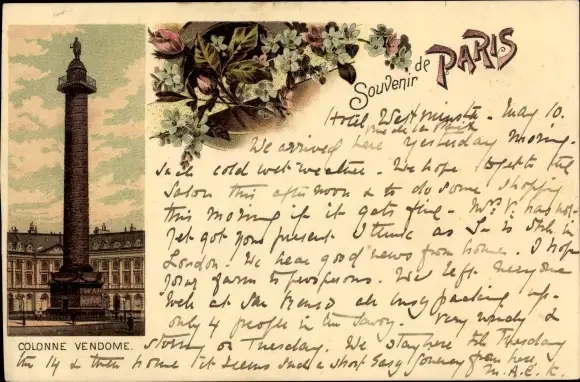 Souvenir de PARIS
Hotel Westminster - May 10.
rue de la Paix
We arrived here yesterday morning.
Such cold wet weather. We hope to get to the
Salon this afternoon & to do some shopping
this morning if it gets fine - Mr. V. has not
yet got your present I think as is still in
London. We hear good news from home. I hope
your farm is prosperous. We left everyone
well at the all busy packing up -
only 4 people in the Savoy. Very windy &
stormy on Tuesday. We stay here till Tuesday
the 14 & then home it seems such a short easy journey from here.
M.A.E.K.
COLONNE VENDOME.